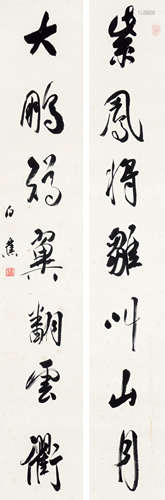 紫鳳將雛叫山月
大鵬矯翼翻雲衢
白蕉